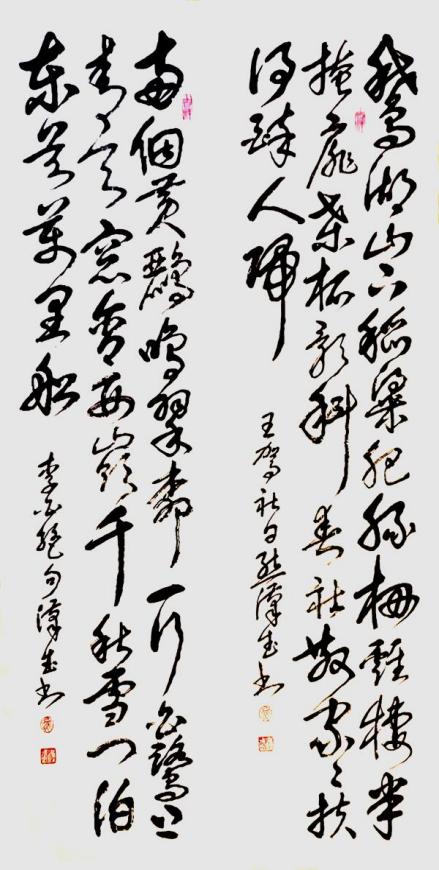 鵝湖山下稻粱肥豚柵雞棲半
掩扉桑柘影斜春社散家〻扶
得醉人歸
王驾社日熊漢成书
兩個黃鸝鳴翠柳一行白鷺上
青天窓含西嶺千秋雪门泊
東吳萬里船
李白絕句漢成书